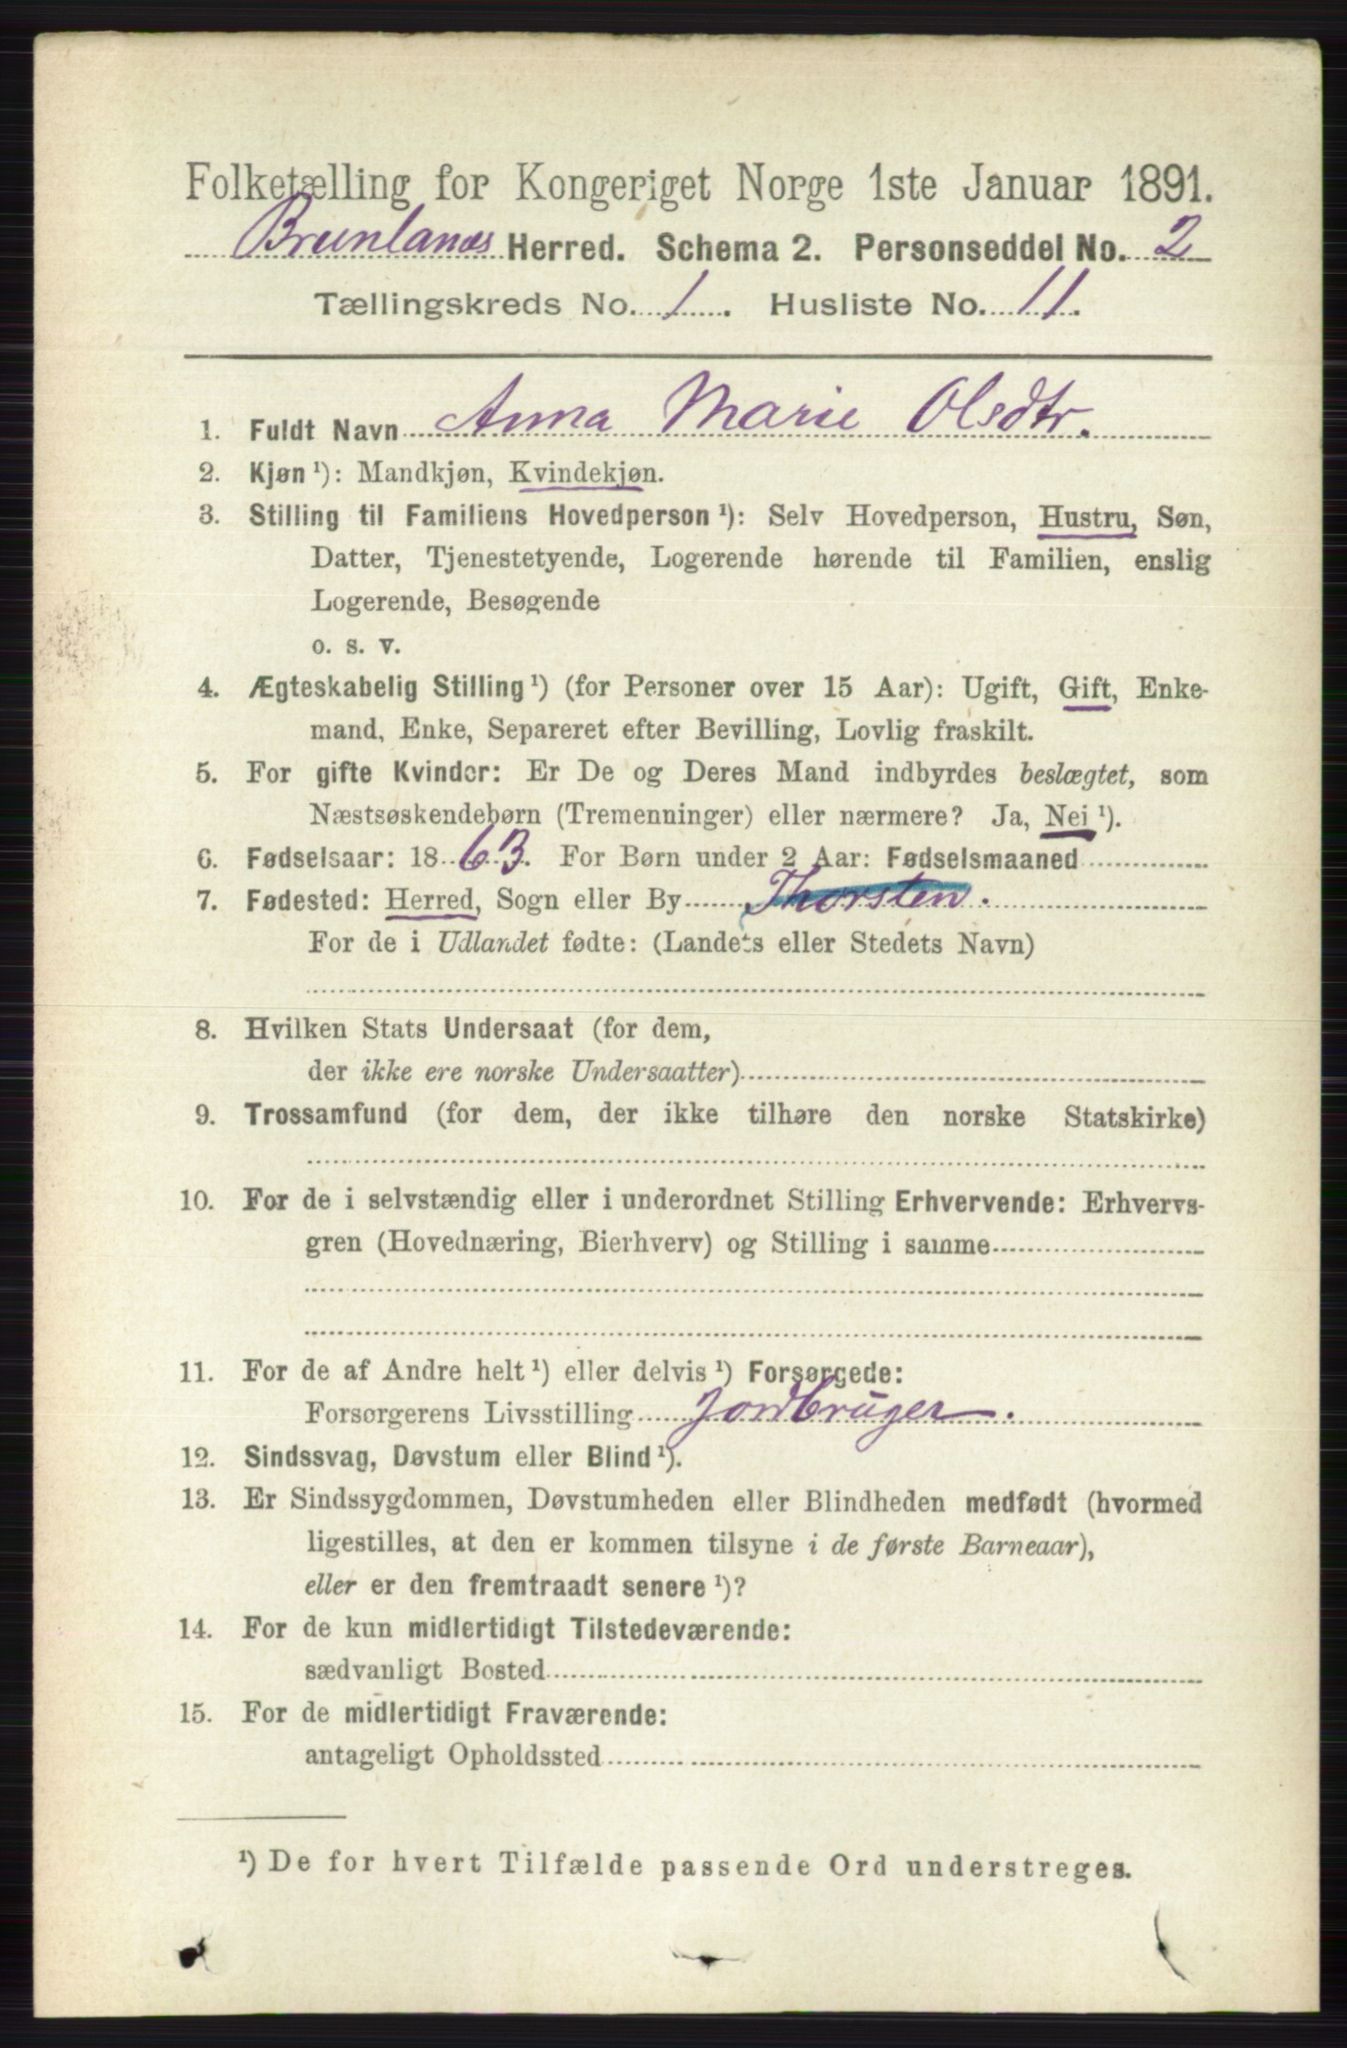 Folketælling for Kongeriget Norge 1ste Januar 1891.
Brunlanæs Herred. Schema 2. Personseddel No. 2
Tællingskreds No. 1. Husliste No. 11.
1. Fuldt Navn Anna Marie Olsdtr.
2. Kjøn ¹): Mandkjøn, Kvindekjøn.
3. Stilling til Familiens Hovedperson ¹): Selv Hovedperson, Hustru, Søn,
Datter, Tjenestetyende, Logerende hørende til Familien, enslig
Logerende, Besøgende
o. s. v.
4. Ægteskabelig Stilling ¹) (for Personer over 15 Aar): Ugift, Gift, Enke-
mand, Enke, Separeret efter Bevilling, Lovlig fraskilt.
5. For gifte Kvinder: Er De og Deres Mand indbyrdes beslægtet, som
Næstsøskendebørn (Tremenninger) eller nærmere? Ja, Nei ¹).
6. Fødselsaar: 1863. For Børn under 2 Aar: Fødselsmaaned
7. Fødested: Herred, Sogn eller By Thorsten.
For de i Udlandet fødte: (Landets eller Stedets Navn)
8. Hvilken Stats Undersaat (for dem,
der ikke ere norske Undersaatter)
9. Trossamfund (for dem, der ikke tilhøre den norske Statskirke)
10. For de i selvstændig eller i underordnet Stilling Erhvervende: Erhvervs-
gren (Hovednæring, Bierhverv) og Stilling i samme
11. For de af Andre helt ¹) eller delvis ¹) Forsørgede:
Forsørgerens Livsstilling Jordbruger.
12. Sindssvag, Døvstum eller Blind ¹).
13. Er Sindssygdommen, Døvstumheden eller Blindheden medfødt (hvormed
ligestilles, at den er kommen tilsyne i de første Barneaar),
eller er den fremtraadt senere ¹)?
14. For de kun midlertidigt Tilstedeværende:
sædvanligt Bosted
15. For de midlertidigt Fraværende:
antageligt Opholdssted
¹) De for hvert Tilfælde passende Ord understreges.